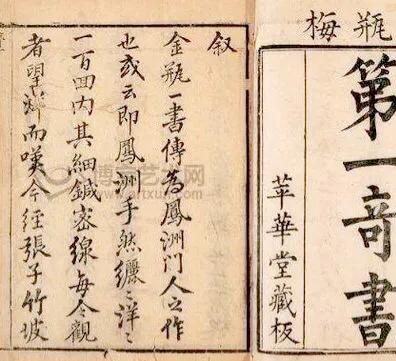 瓶梅
第一奇書
苹華堂藏板
叙
金瓶一書傳為鳳洲門人之作
也或云即鳳洲手然纚〻洋〻
一百回内其細鍼密線每令觀
者望洋而嘆今經張子竹坡